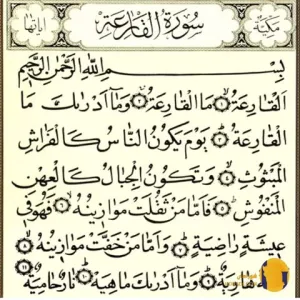 مكية سورة القارعة اياتها
بِسْمِ اللَّهِ الرَّحْمَٰنِ الرَّحِيمِ
اَلْقَارِعَةُ ۝ مَا الْقَارِعَةُ ۝ وَمَا أَدْرٰىكَ مَا
الْقَارِعَةُ ۝ يَوْمَ يَكُونُ النَّاسُ كَالْفَرَاشِ
الْمَبْثُوثِ ۝ وَتَكُونُ الْجِبَالُ كَالْعِهْنِ
الْمَنْفُوشِ ۝ فَاَمَّا مَنْ ثَقُلَتْ مَوَازِينُهُ ۝ فَهُوَ فِي
عِيشَةٍ رَاضِيَةٍ ۝ وَاَمَّا مَنْ خَفَّتْ مَوَازِينُهُ ۝
هَاوِيَةٌ ۝ وَمَا أَدْرٰىكَ مَاهِيَهْ ۝ نَارٌ حَامِيَةٌ ۝